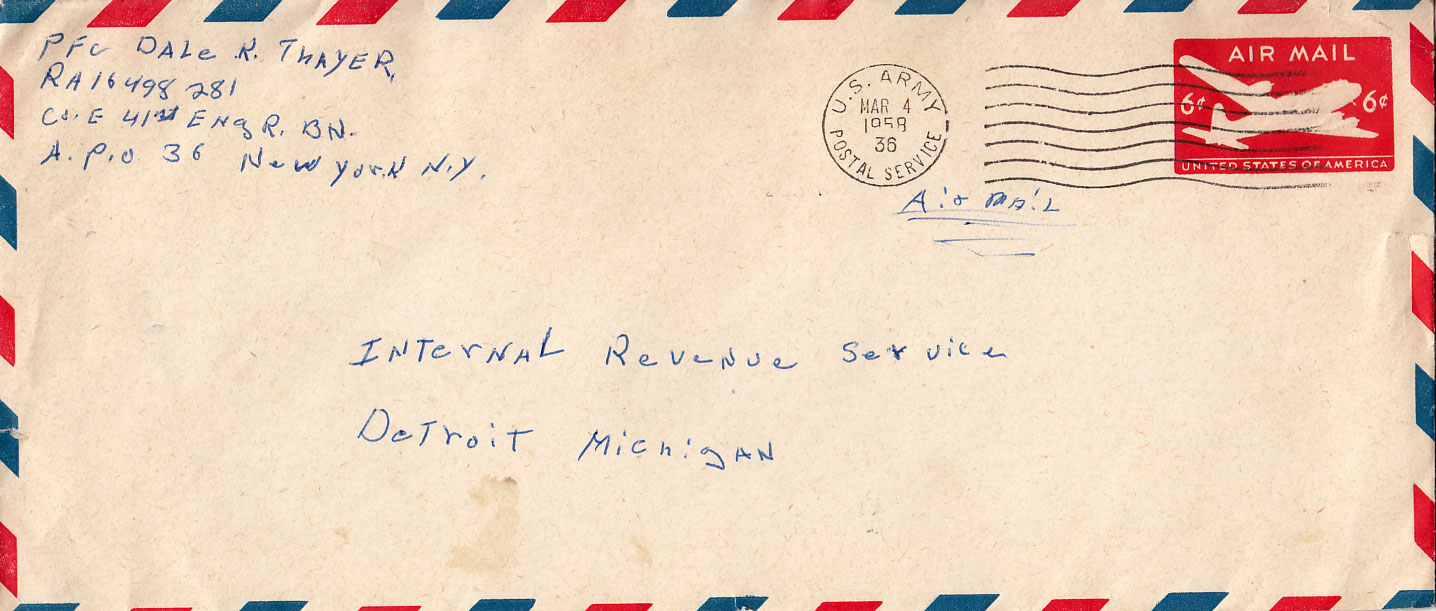 PFC DALe R. THAYER,
RA16498281
Co. E 41st ENgR. BN.
A.P.O. 36 New York N.Y.
U.S. ARMY
MAR 4
1958
36
POSTAL SERVICE
AIR MAIL
6¢ 6¢
UNITED STATES OF AMERICA
Air MAiL
INTerNAL Revenue Service
DeTroiT MichigAN